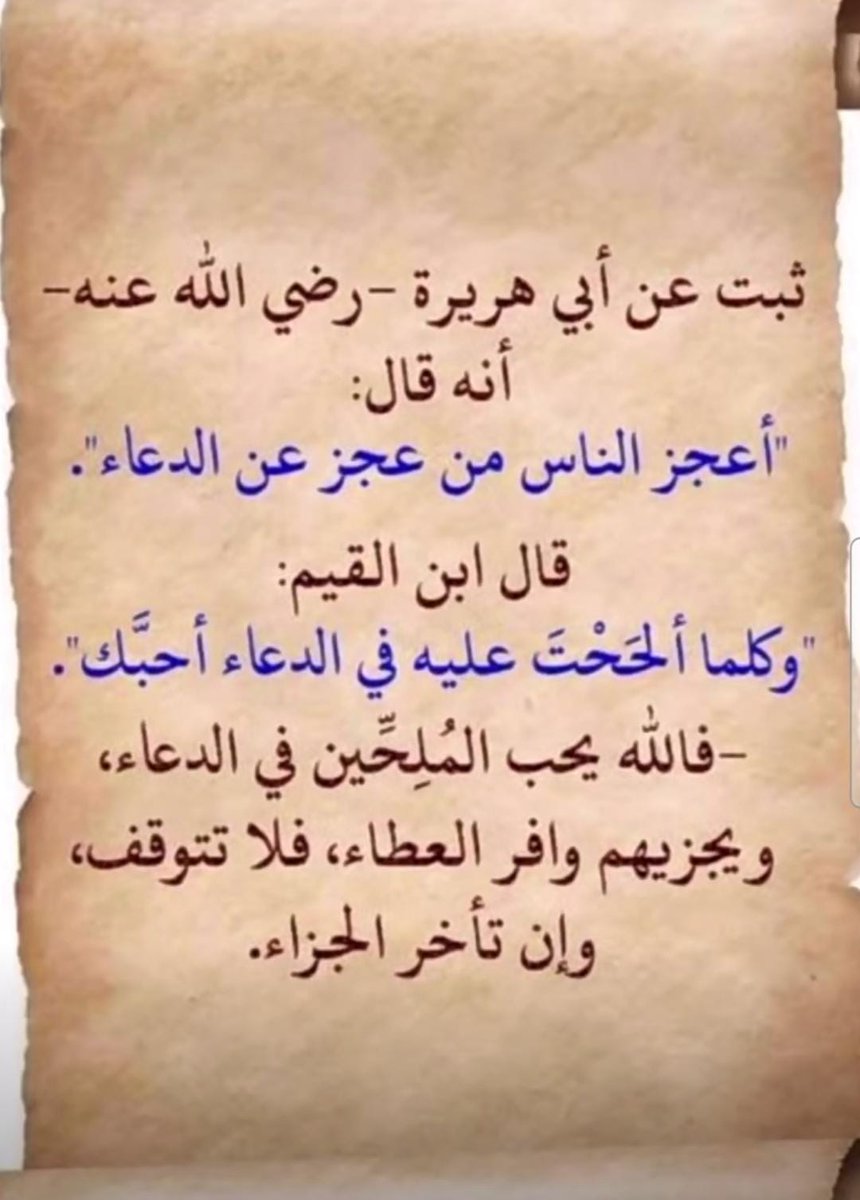 ثبت عن أبي هريرة -رضي الله عنه-
أنه قال:
"أعجز الناس من عجز عن الدعاء".
قال ابن القيم:
"وكلما ألحَحْتَ عليه في الدعاء أحبَّك".
-فالله يحب المُلِحِّين في الدعاء،
ويجزيهم وافر العطاء، فلا تتوقف،
وإن تأخر الجزاء.